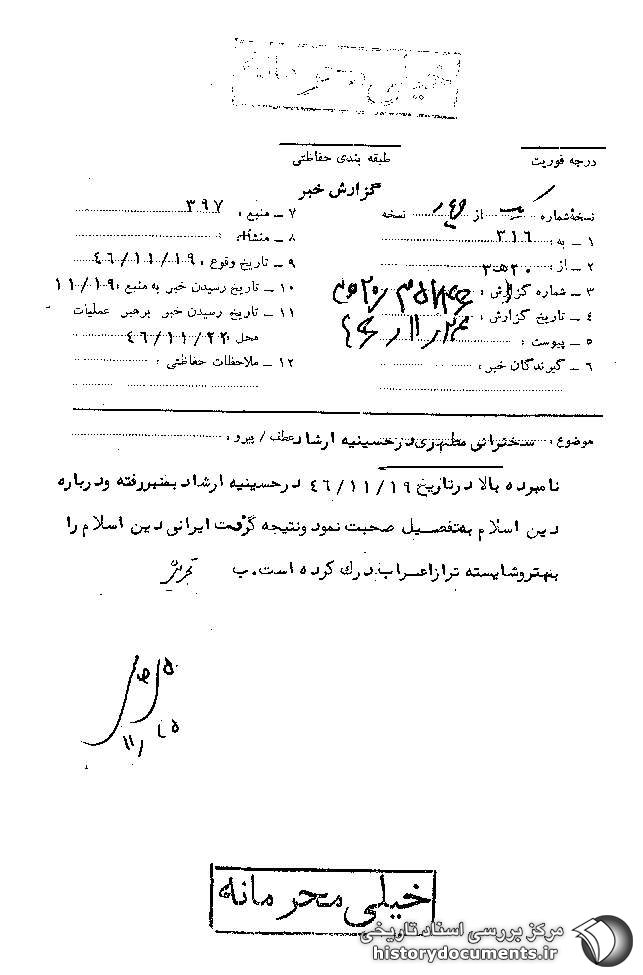 خیلی محرمانه
درجه فوریت
طبقه بندی حفاظتی
گزارش خبر
نسخهٔ شماره یک از چهار نسخه
۱ ـ به : ۳۱۶
۲ ـ از : ۲۰ ه ۳
۳ ـ شماره گزارش :
۴ ـ تاریخ گزارش :
۵ ـ پیوست :
۶ ـ گیرندگان خبر :
۷ ـ منبع : ۳۹۷
۸ ـ منشاء :
۹ ـ تاریخ وقوع : ۴۶/۱۱/۱۹
۱۰ ـ تاریخ رسیدن خبر به منبع : ۱۱/۱۹
۱۱ ـ تاریخ رسیدن خبر برهبر عملیات
محل : ۴۶/۱۱/۲۲
۱۲ ـ ملاحظات حفاظتی :
موضوع : سخنرانی مطهری در حسینیه ارشاد عطف / پیرو :
نامبرده بالا در تاریخ ۴۶/۱۱/۱۹ در حسینیه ارشاد بمنبر رفته و درباره
دین اسلام بتفصیل صحبت نمود و نتیجه گرفت ایرانی دین اسلام را
بهتر و شایسته تر از اعراب درک کرده است. ب
خیلی محرمانه
مرکز بررسی اسناد تاریخی
historydocuments.ir